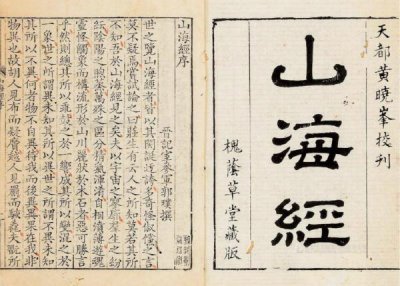 天都黃曉峯校刊
山海經
槐蔭草堂藏版
山海經序
晉記室參軍郭璞撰
世之覽山海經者皆以其閎誕迂誇多奇怪俶儻之言
莫不疑焉嘗試論之曰莊生有云人之所知莫若其所
不知吾於山海經見之矣夫以宇宙之寥廓群生之紛
紜陰陽之煦蒸萬殊之區分精氣渾淆自相濆薄遊魂
靈怪觸象而構流形於山川麗狀於木石者惡可勝言
乎然則總其所以乖鼓之於一響成其所以變混之於
一象世之所謂異未知其所以異世之所謂不異未知
其所以不異何者物不自異待我而後異異果在我非
物異也故胡人見布而疑黂越人見罽而駭毳夫翫所